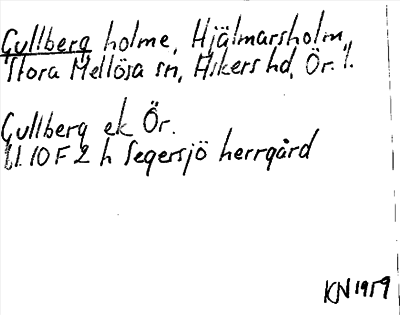 Gullberg holme, Hjälmarsholm,
Stora Mellösa sn, Askers hd, Ör. l.
Gullberg ek Ör.
10 F 2 h Segersjö herrgård
KN 1959